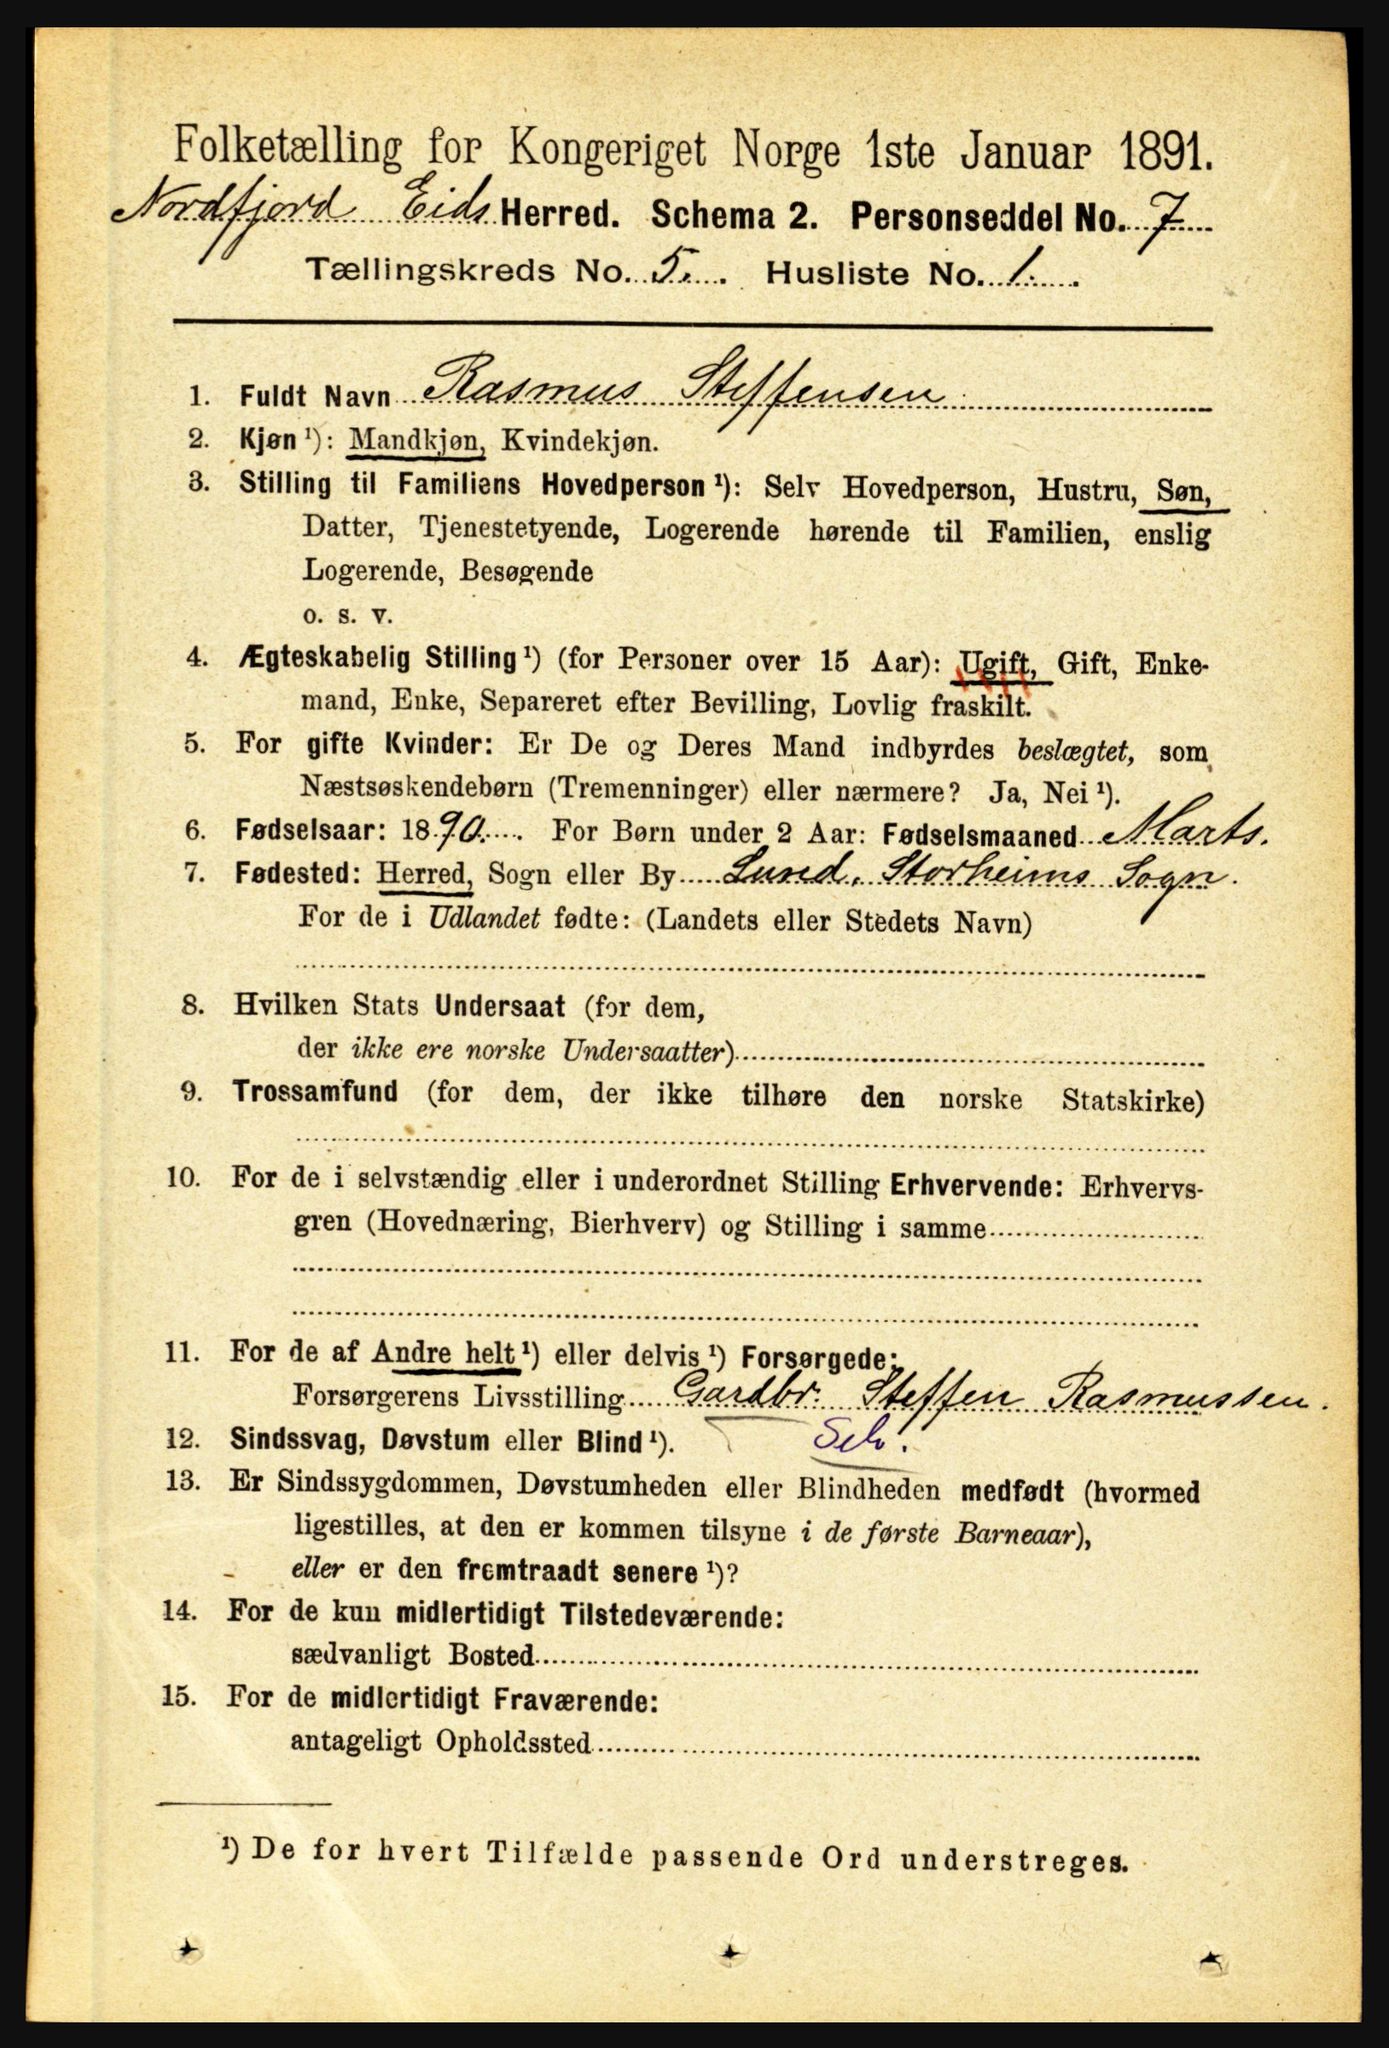 Folketælling for Kongeriget Norge 1ste Januar 1891.
Nordfjord Eids Herred. Schema 2. Personseddel No. 7
Tællingskreds No. 5. Husliste No. 1.
1. Fuldt Navn Rasmus Steffensen
2. Kjøn ¹): Mandkjøn, Kvindekjøn.
3. Stilling til Familiens Hovedperson ¹): Selv Hovedperson, Hustru, Søn,
Datter, Tjenestetyende, Logerende hørende til Familien, enslig
Logerende, Besøgende
o. s. v.
4. Ægteskabelig Stilling ¹) (for Personer over 15 Aar): Ugift, Gift, Enke-
mand, Enke, Separeret efter Bevilling, Lovlig fraskilt.
5. For gifte Kvinder: Er De og Deres Mand indbyrdes beslægtet, som
Næstsøskendebørn (Tremenninger) eller nærmere? Ja, Nei ¹).
6. Fødselsaar: 1890. For Børn under 2 Aar: Fødselsmaaned Marts.
7. Fødested: Herred, Sogn eller By Lund, Storheims Sogn.
For de i Udlandet fødte: (Landets eller Stedets Navn)
8. Hvilken Stats Undersaat (for dem,
der ikke ere norske Undersaatter)
9. Trossamfund (for dem, der ikke tilhøre den norske Statskirke)
10. For de i selvstændig eller i underordnet Stilling Erhvervende: Erhvervs-
gren (Hovednæring, Bierhverv) og Stilling i samme
11. For de af Andre helt ¹) eller delvis ¹) Forsørgede:
Forsørgerens Livsstilling Gardbr. Steffen Rasmussen.
12. Sindssvag, Døvstum eller Blind ¹). Selv.
13. Er Sindssygdommen, Døvstumheden eller Blindheden medfødt (hvormed
ligestilles, at den er kommen tilsyne i de første Barneaar),
eller er den fremtraadt senere ¹)?
14. For de kun midlertidigt Tilstedeværende:
sædvanligt Bosted
15. For de midlertidigt Fraværende:
antageligt Opholdssted
¹) De for hvert Tilfælde passende Ord understreges.